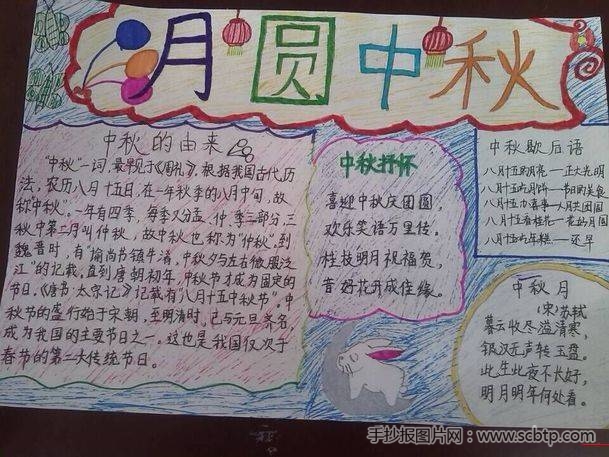 月圆中秋
中秋的由来
"中秋"一词,最早见于《周礼》。根据我国古代历
法,农历八月十五日,在一年秋季的八月中旬,故
称"中秋"。一年有四季,每季又分孟、仲、季三部分,三
秋中第二月叫仲秋,故中秋也称为"仲秋"。到
魏晋时,有"谕尚书镇牛渚,中秋夕与左右微服泛
江"的记载。直到唐朝初年,中秋节才成为固定的
节日。《唐书·太宗记》记载有"八月十五中秋节"。中
秋节的盛行始于宋朝,至明清时,已与元旦齐名,
成为我国的主要节日之一。这也是我国仅次于
春节的第二大传统节日。
中秋抒怀
喜迎中秋庆团圆,
欢乐笑语万里传。
桂枝明月祝福贺,
昔好花开成佳缘。
中秋歇后语
八月十五的月亮——正大光明
八月十五的月饼——节日的美食
八月十五办喜事——人月共团圆
八月十五看桂花——花好月圆
八月十五吃年糕——还早
中秋月
(宋)苏轼
暮云收尽溢清寒,
银汉无声转玉盘。
此生此夜不长好,
明月明年何处看。
手抄报图片网:www.scbtp.com